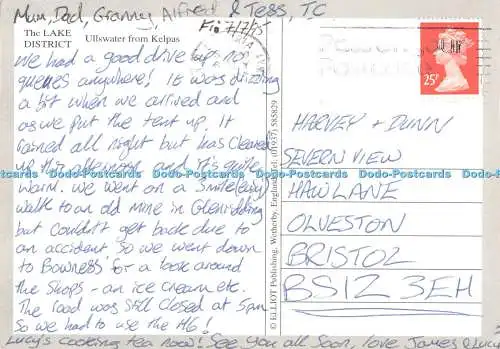 Mum, Dad, Granny, Alfred & Tess, T.C
Fri 7/7/95
The LAKE
DISTRICT
Ullswater from Kelpas
We had a good drive up, no
queues anywhere! It was drizzling
a bit when we arrived and
as we put the tent up. It
rained all night but has cleared
up this afternoon and it's quite
warm. We went on a 5mile(ey)
walk to an old mine in Glenridding
but couldn't get back due to
an accident so we went down
to Bowness for a look around
the shops - an ice cream etc.
The road was still closed at 5pm
so we had to use the M6!
Lucy's cooking tea now! See you all soon, love James & Lucy
© ELLIOT Publishing, Wetherby, England. Tel: (01937) 585829
25P
HARVEY + DUNN
SEVERN VIEW
HAW LANE
OLVESTON
BRISTOL
BS12 3EH
Udo-Postcards Udo-Postcards Udo-Postcards Udo-Postcards Udo-Postcards Udo-Postcards
Udo-Postcards Udo-Postcards Udo-Postcards Udo-Postcards Udo-Postcards Udo-Postcards